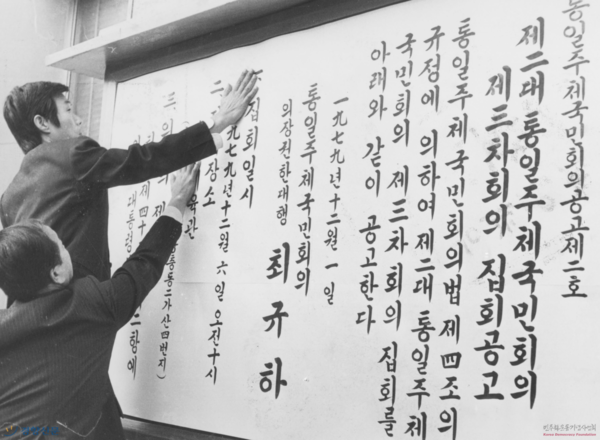 통일주체국민회의공고제二호
제二대 통일주체국민회의
제三차회의 집회공고
통일주체국민회의법 제四조의
규정에 의하여 제二대 통일주체
국민회의 제三차회의 집회를
아래와 같이 공고한다
一九七九年十二월 一일
통일주체국민회의
의장권한대행 최규하
집회일시
九七九년十二월 六일 오전十시
二 장소
육관
통동二가산四번지)
三 의
제四十
二항에
대통령
민주화운동기념사업회
Korea Democracy Foundation